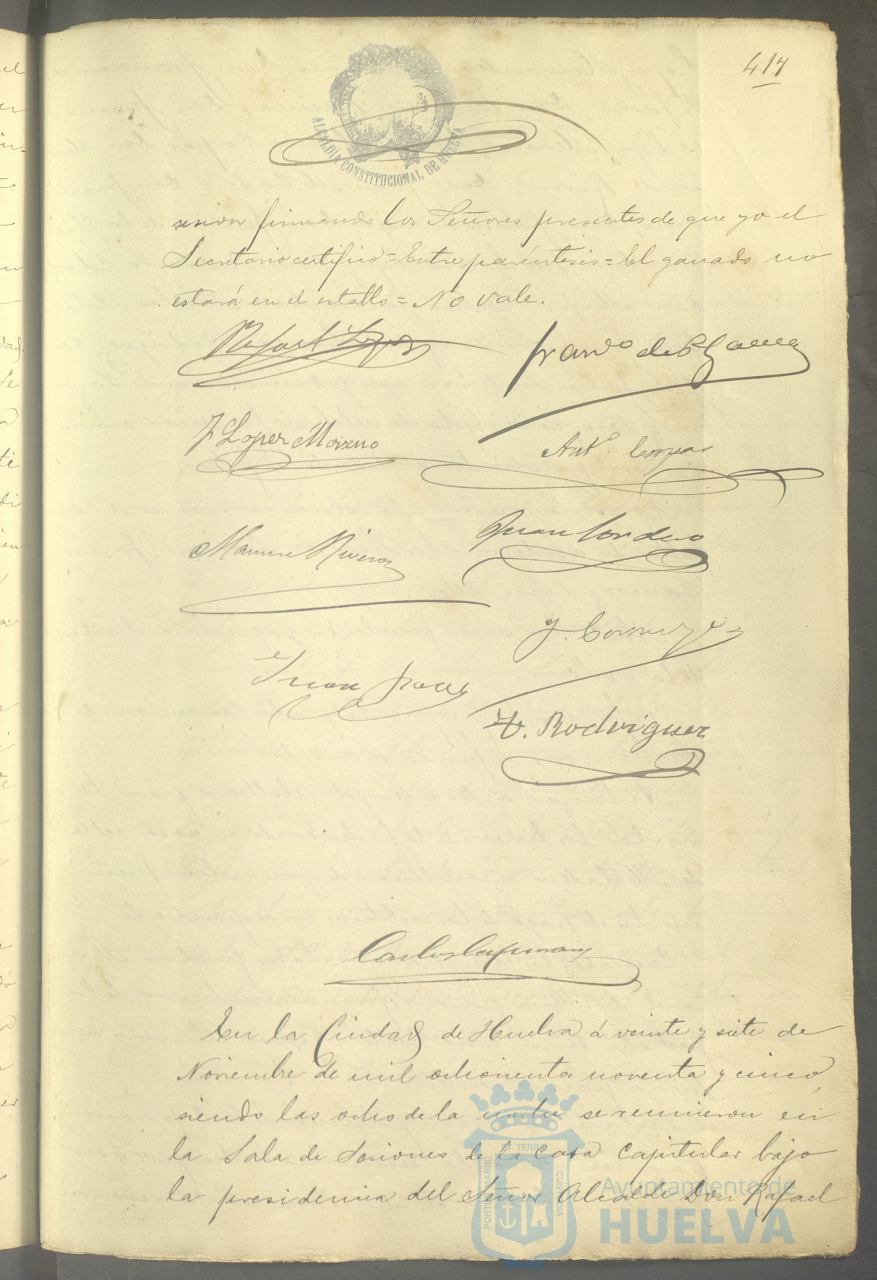 417
ALCALDÍA CONSTITUCIONAL DE HUELVA
sesion firmando los Señores presentes de que yo el
Secretario certifico = Entre parentesis = El ganado no
estará en el establo = No vale.
Rafael Lopez
Franco de P
J Lopez Moreno
Anto
Manuel Rivera
Juan Cordero
J.
Juan
Rodriguez
Carlos
En la Ciudad de Huelva á veinte y siete de
Noviembre de mil ochocientos noventa y cinco
siendo las ocho de la noche se reunieron en
la Sala de Sesiones de la casa capitular bajo
la presidencia del Señor Alcalde Don Rafael
PORTUS MARIS ET TERRÆ CUSTODIA
Ayuntamiento de
HUELVA